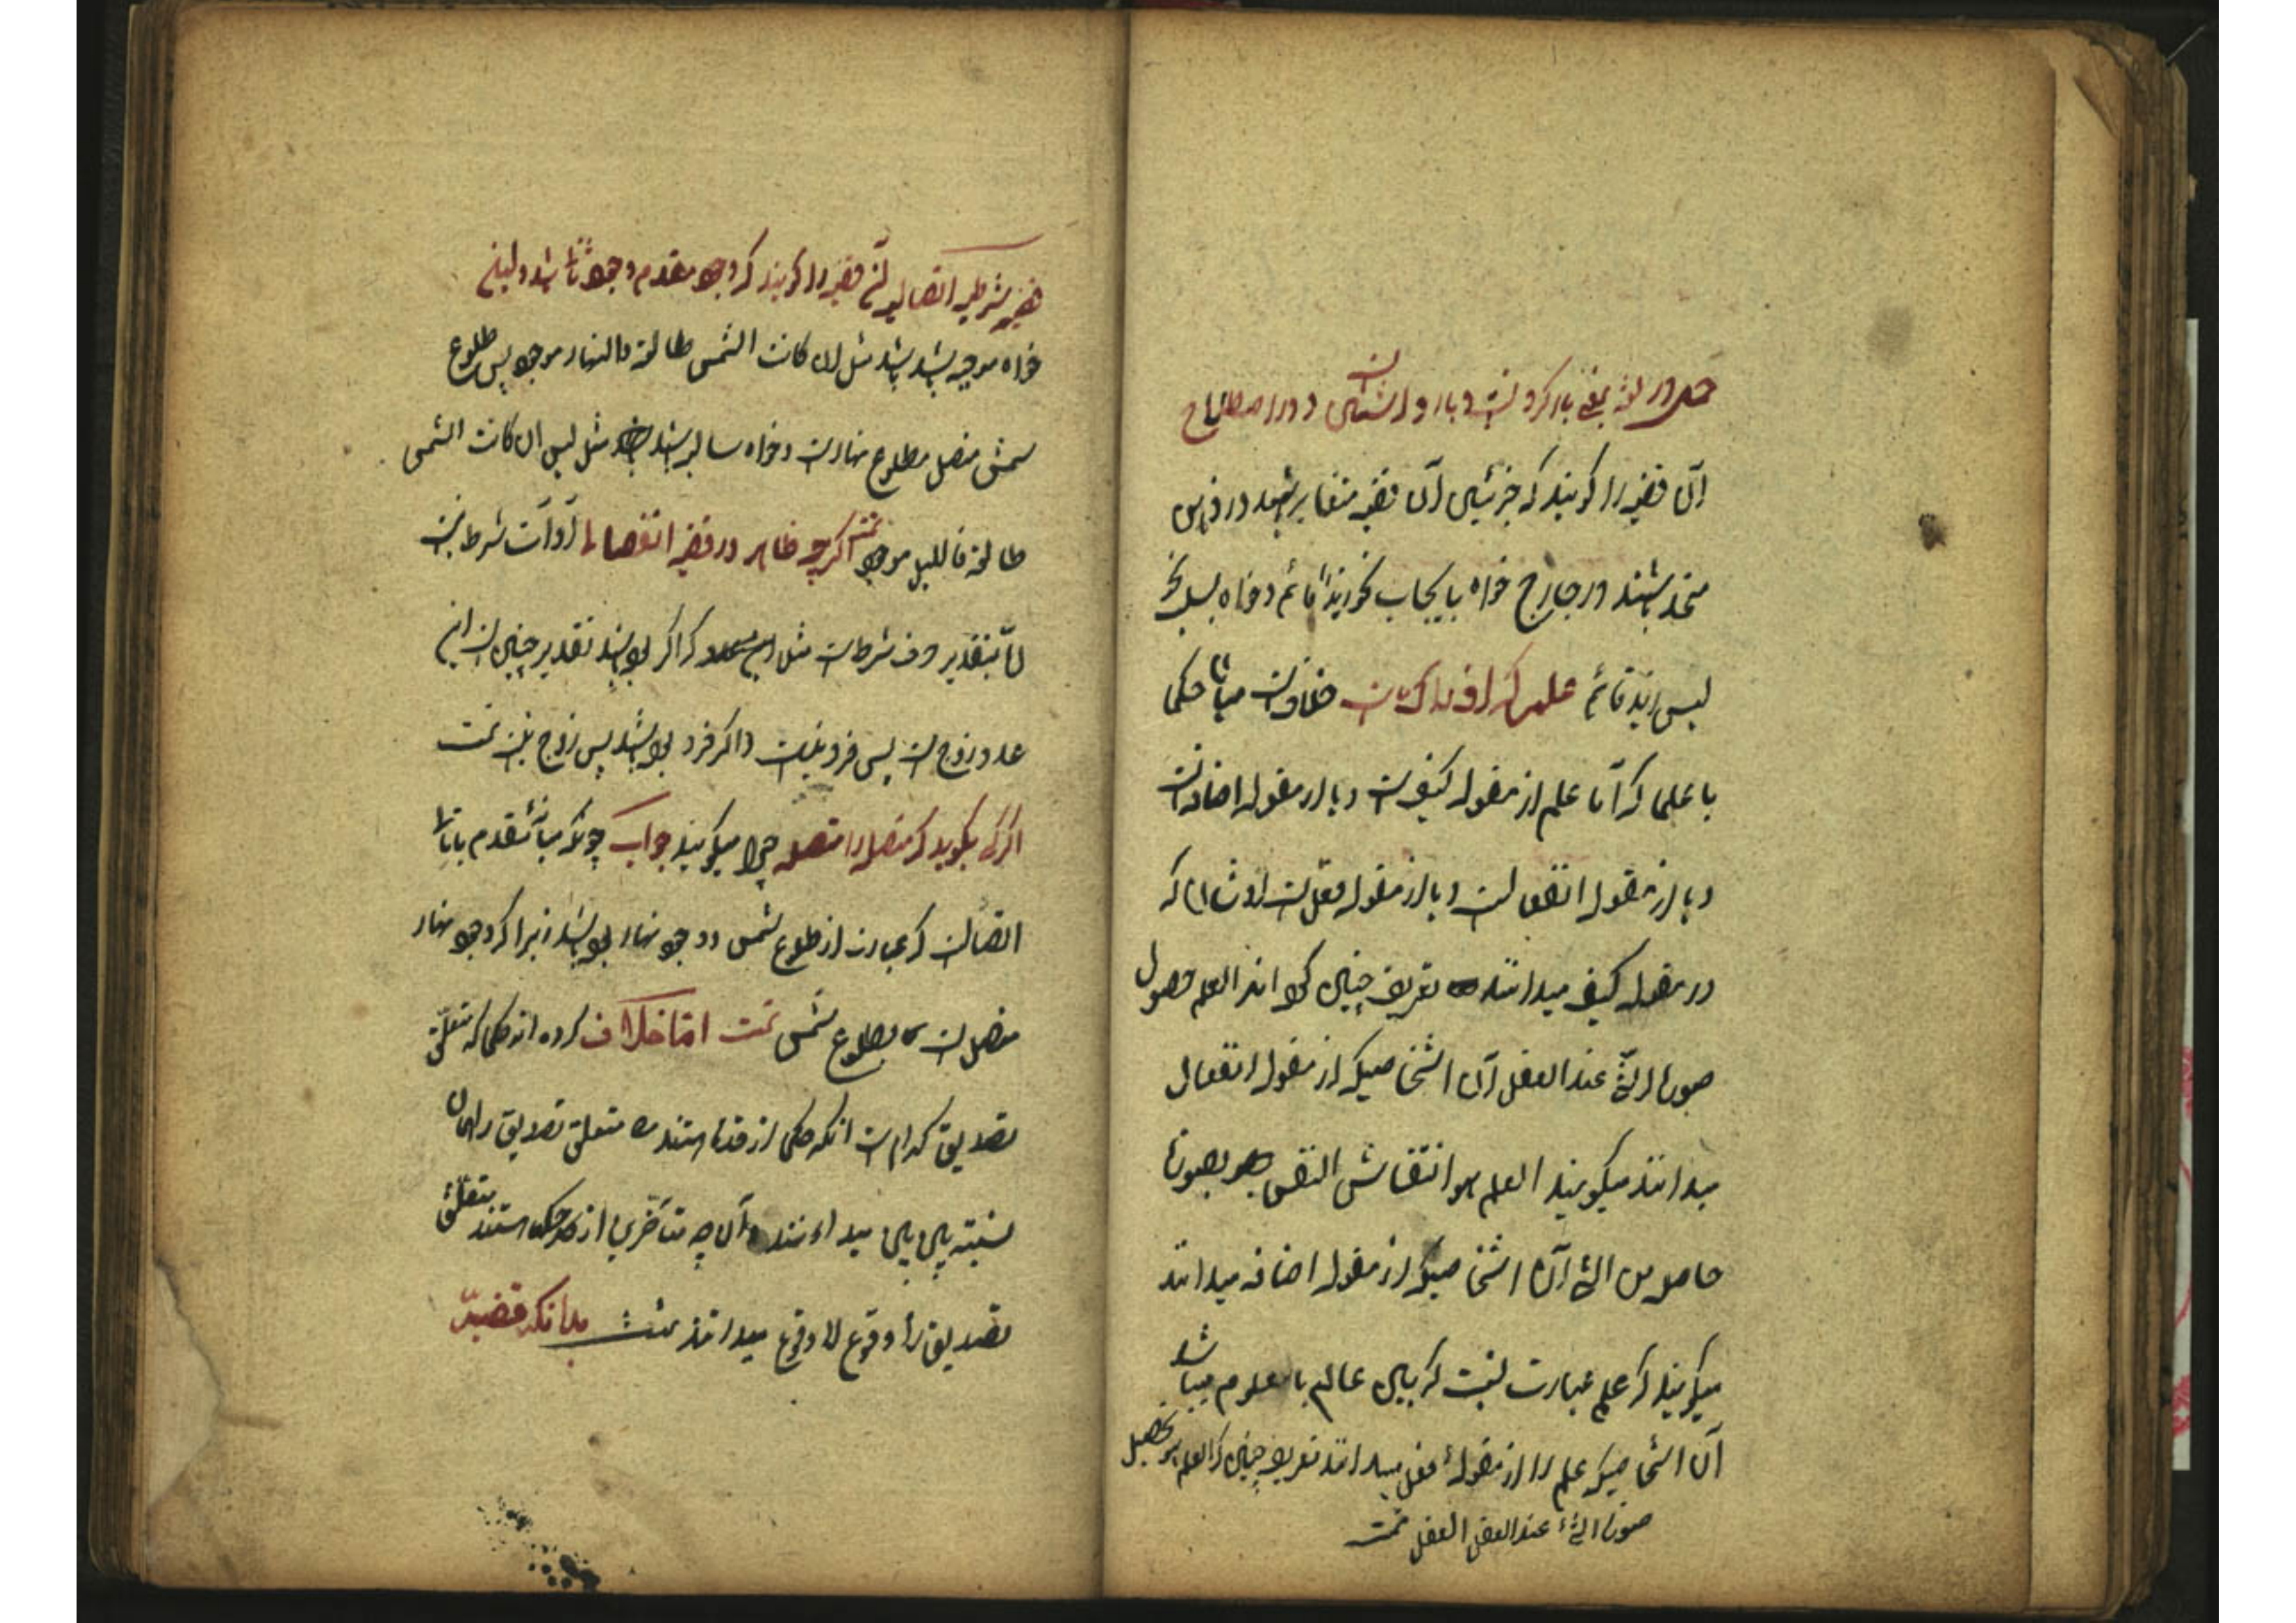 حمل در لغة بمعنی بار کردنست و بار و اشتمال و در اصطلاح
آن قضیه را کویند که جزئیان آن قضیه متغایر باشد در ذهن
متحد باشند در خارج خواه بایجاب نحو زید قائم و خواه بسلب نحو
لیس زید قائم علم که ادراکست متفاوتست میان حکما
با علما که آیا علم از مقوله کیفست و یا از مقوله اضافتست
و یا از مقوله انفعالست و یا از مقوله فعلست که
در مقوله کیف میدانند تعریف چنین کرده اند العلم حصول
صورة الشئ عند العقل آن اشخاصیکه از مقوله انفعال
میدانند میکویند العلم هو انتقاش النفس بصورة
حاصل من الشئ آن اشخاصیکه از مقوله اضافه میدانند
میکویند که علم عبارت نسبت که میان عالم با معلوم میباشد
آن اشخاصیکه علم را از مقولهٔ فعل میدانند تعریف چنین که العلم هو تحصیل
صورة الشئ عند العقل تمت
قضیه شرطیه اتصالیه آن قضیه را کویند که وجود مقدم وجود تا باشد
خواه موجبه باشد مثل ان کانت الشمس طالعة فالنهار موجود پس طلوع
شمس متصل بطلوع نهارست و خواه سالبه باشد مثل لیس ان کانت الشمس
طالعة فاللیل موجود تمت اکرچه ظاهر در قضیه انفصال ادوات شرط نیست
اما بتقدیر حرف شرطست مثل که اکر بوده باشد تقدیر چنین است این
عدد زوج است پس فرد نیست و اکر فرد بوده باشد پس زوج نیست تمت
اکر کسی بکوید که متصله را متصله چرا میکویند جواب چونکه میان مقدم با تا
اتصالست که عبارت از طلوع شمس و وجود نهار بوده باشد زیرا که وجود نهار
متصل است بطلوع شمس تمت اما خلاف کرده اند حکما که متعلق
تصدیق کدام است انکه حکمای از قدما هستند متعلق تصدیق را همان
نسبته بین بین میدانند و آن چه متأخرین از حکما هستند متعلق
تصدیق را وقوع لا وقوع میدانند تمت بدانکه قضیه